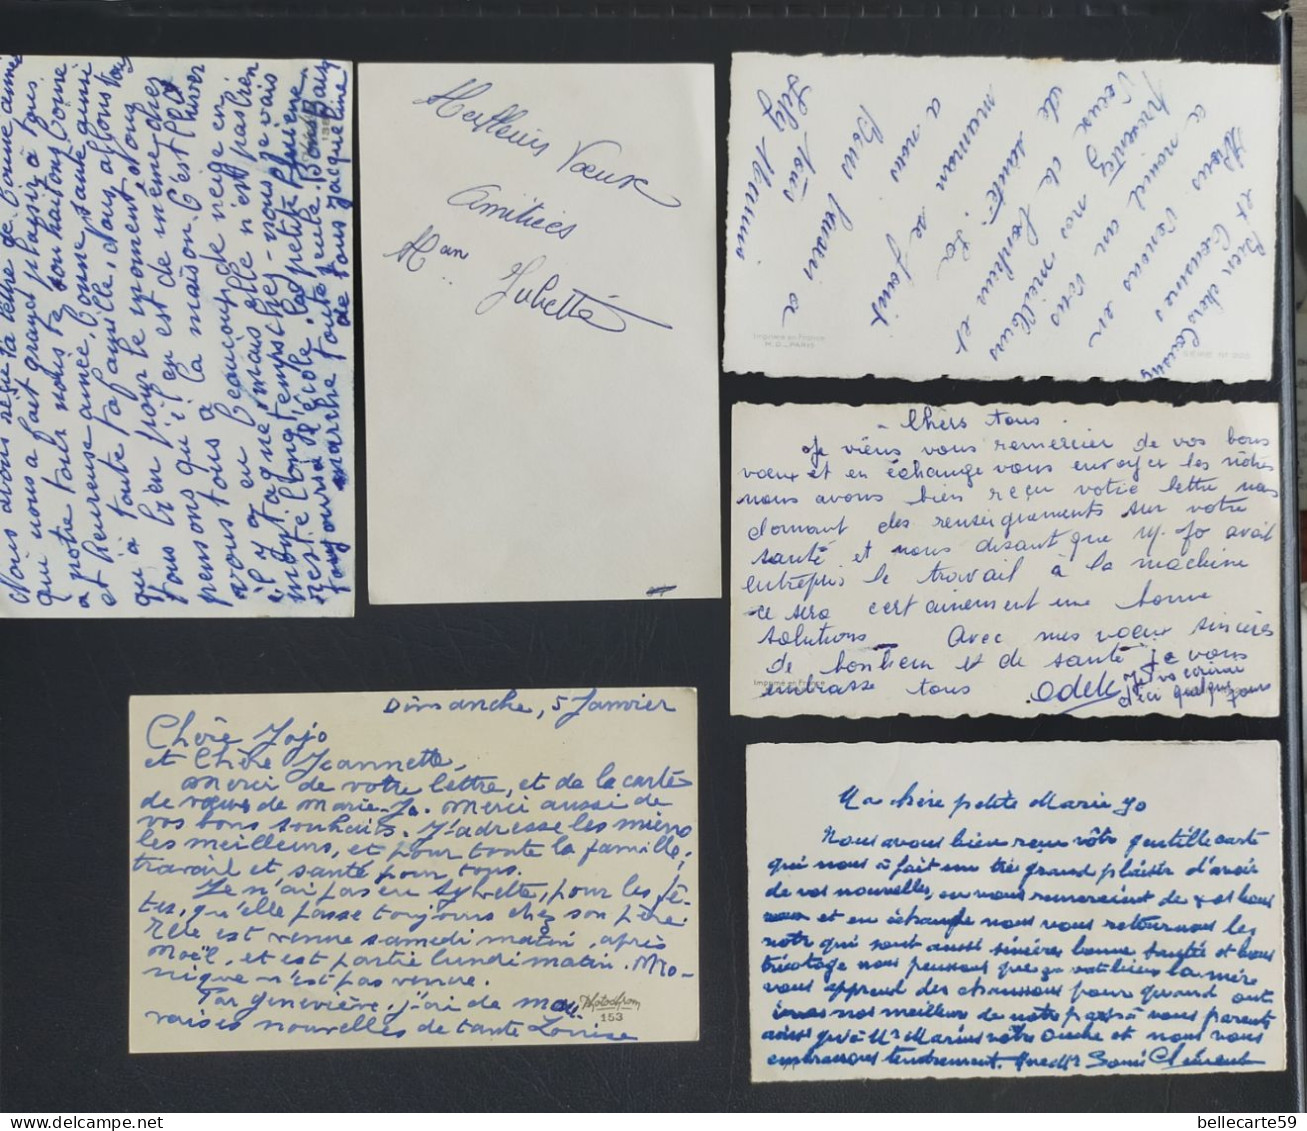 Nous avons reçu ta lettre de bonne année
qui nous a fait grand plaisir à tous
a notre tour nous te souhaitons bonne
et heureuse année, bonne santé aussi
qu à toute ta famille, nous allons tous
tous bien pour le moment nous
pensons qu'il en est de même chez
vous tous à la maison. C'est l'hiver
il y a eu beaucoup de neige en
montagne mais elle n'est pas bien
resté longtemps chez-nous je vais
toujours a l'école la petite
marche toute seule. Bons Baisers
de tous Jacqueline
Meilleurs Vœux
Amitiés
Mman Juliette
Bien chers Cousins
et Cousines
Nous venons en
ce nouvel an vous
présenter nos meilleurs
Vœux de bonheur et
de santé. La
maman se joint
a nous
Bons baisers a
tous
Lily Marius
Imprimé en France
M.D. PARIS
SERIE N°
Chers tous.
Je viens vous remercier de vos bons
vœux et en échange vous envoyer les nôtres
nous avons bien reçu votre lettre nous
donnant des renseignements sur votre
santé et nous disant que M. Jo avait
entrepris le travail à la machine
ce sera certainement une bonne
solutions Avec mes vœux sincères
de bonheur et de santé je vous
embrasse tous Odette
Je vs écrirai
d'ici quelques
jours
Imprimé en France
Dimanche, 5 Janvier
Chère Jojo
et Chère Jeannette,
Merci de votre lettre, et de la carte
de vœux de Marie-Jo. Merci aussi de
vos bons souhaits. J'adresse les miens
les meilleurs, et pour toute la famille;
travail et santé pour tous.
Je n'ai pas eu Sylvette, pour les fê-
tes, qu'elle passe toujours chez son père
Elle est venue samedi matin, après
Noël, et est partie lundi matin. Mo-
nique n'est pas venue.
Par Geneviève, j'ai de mau
vaises nouvelles de tante Louise
Photochrom
153
Ma chère petite Marie Jo
Nous avons bien reçu vôtre gentille carte
qui nous à fait un très grand plaisir d'avoir
de vos nouvelles, en nous remerciant de vos bons
vœux et en échange nous vous retournons les
notre qui sont aussi sincères bonne santé et bons
tricotage nous pensons que ta mère
vous apprend des chaussons pour quand
nos meilleurs de notre part à vous parents
ainsi qu'à Mr Marius vôtre Oncle et nous vous
embrassons tendrement. Clément